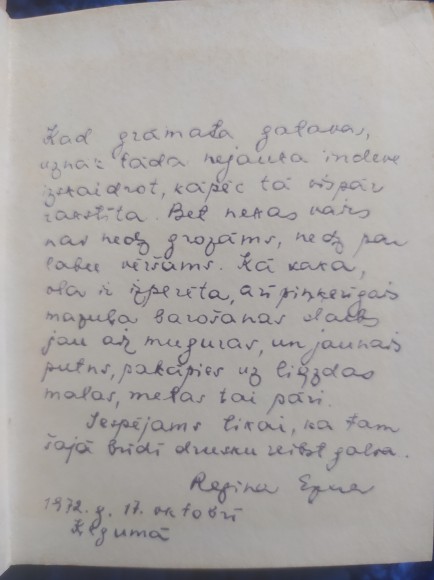 Kad grāmata gatava,
uznāk tāda nejauka indeve
izskaidrot, kāpēc tā vispār
rakstīta. Bet nekas vairs
nav nedz grozāms, nedz par
labu vēršams. Kā saka,
ola ir izperēta, arī piņķerīgais
mazuļa barošanas darbs
jau aiz muguras, un jaunais
putns, pakāpies uz ligzdas
malas, metas tai pāri.
Iespējams tikai, ka tam
šajā brīdī drusku reibst galva.
Regīna Ezera
1972. g. 17. oktobrī
Ķegumā